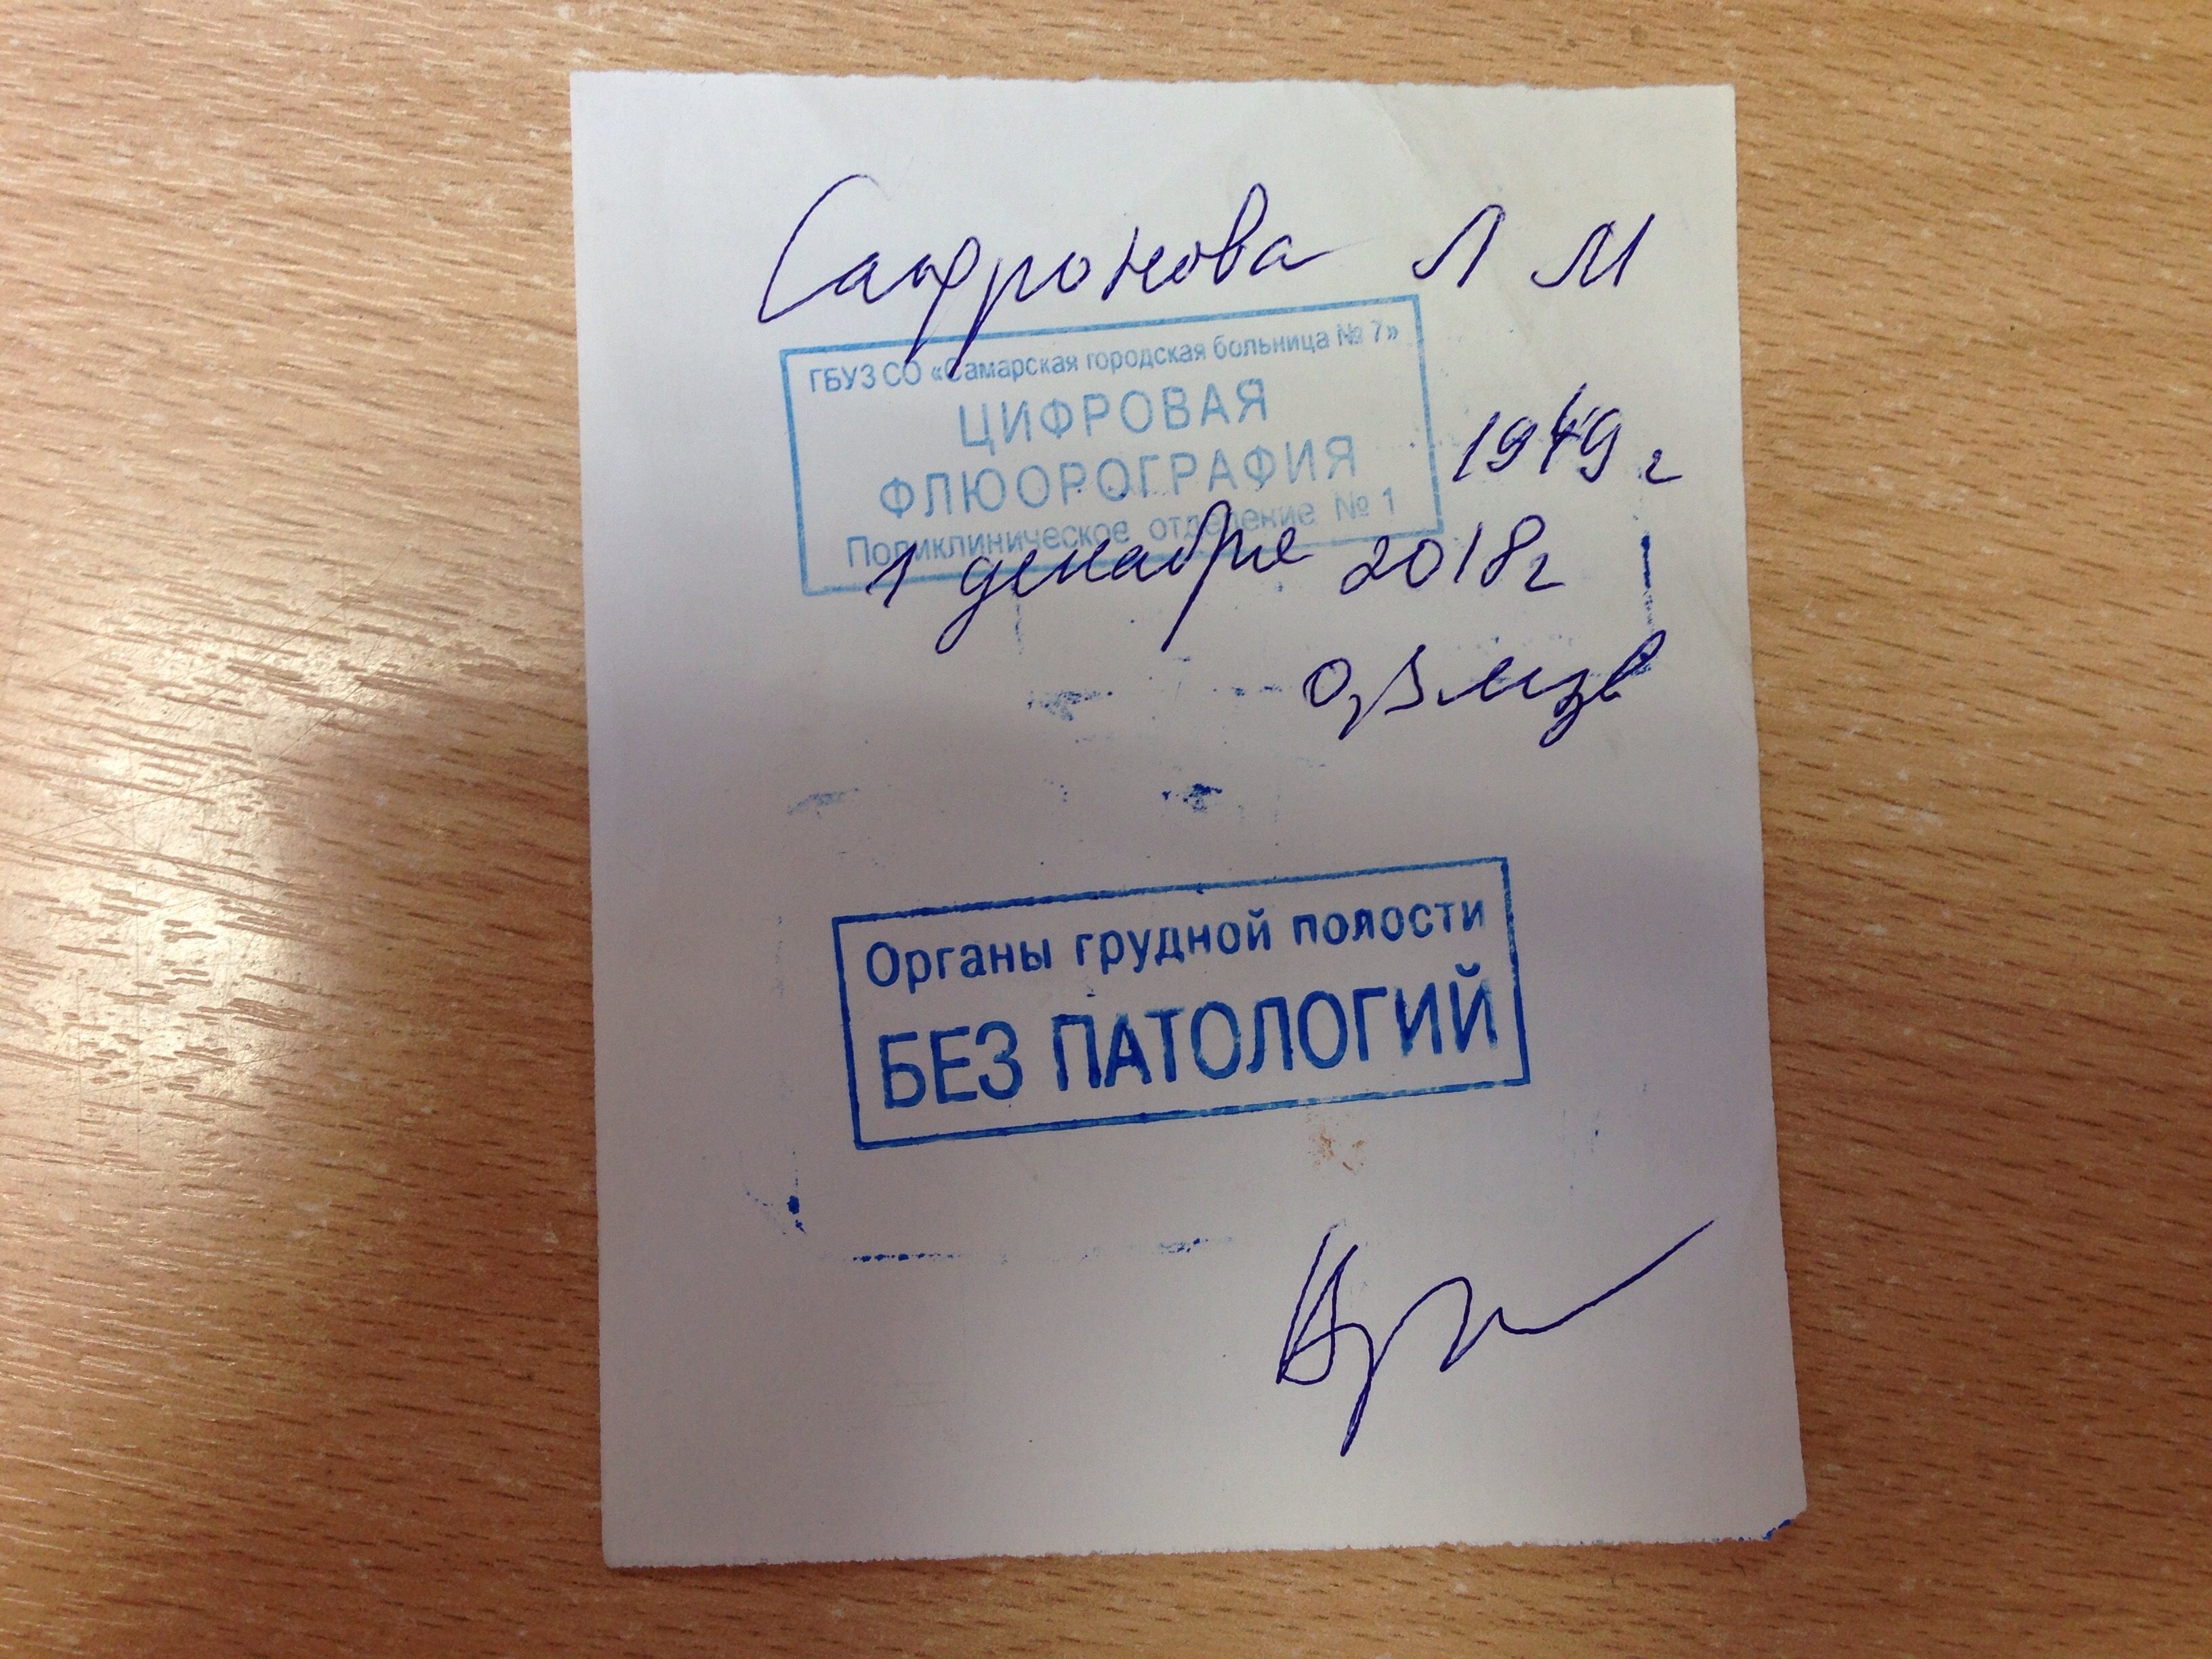 Сафронова Л М
ГБУЗ СО «Самарская городская больница № 7»
ЦИФРОВАЯ
ФЛЮОРОГРАФИЯ
1949 г
Поликлиническое отделение № 1
1 декабря 2018г
0,3 мзв
Органы грудной полости
БЕЗ ПАТОЛОГИЙ